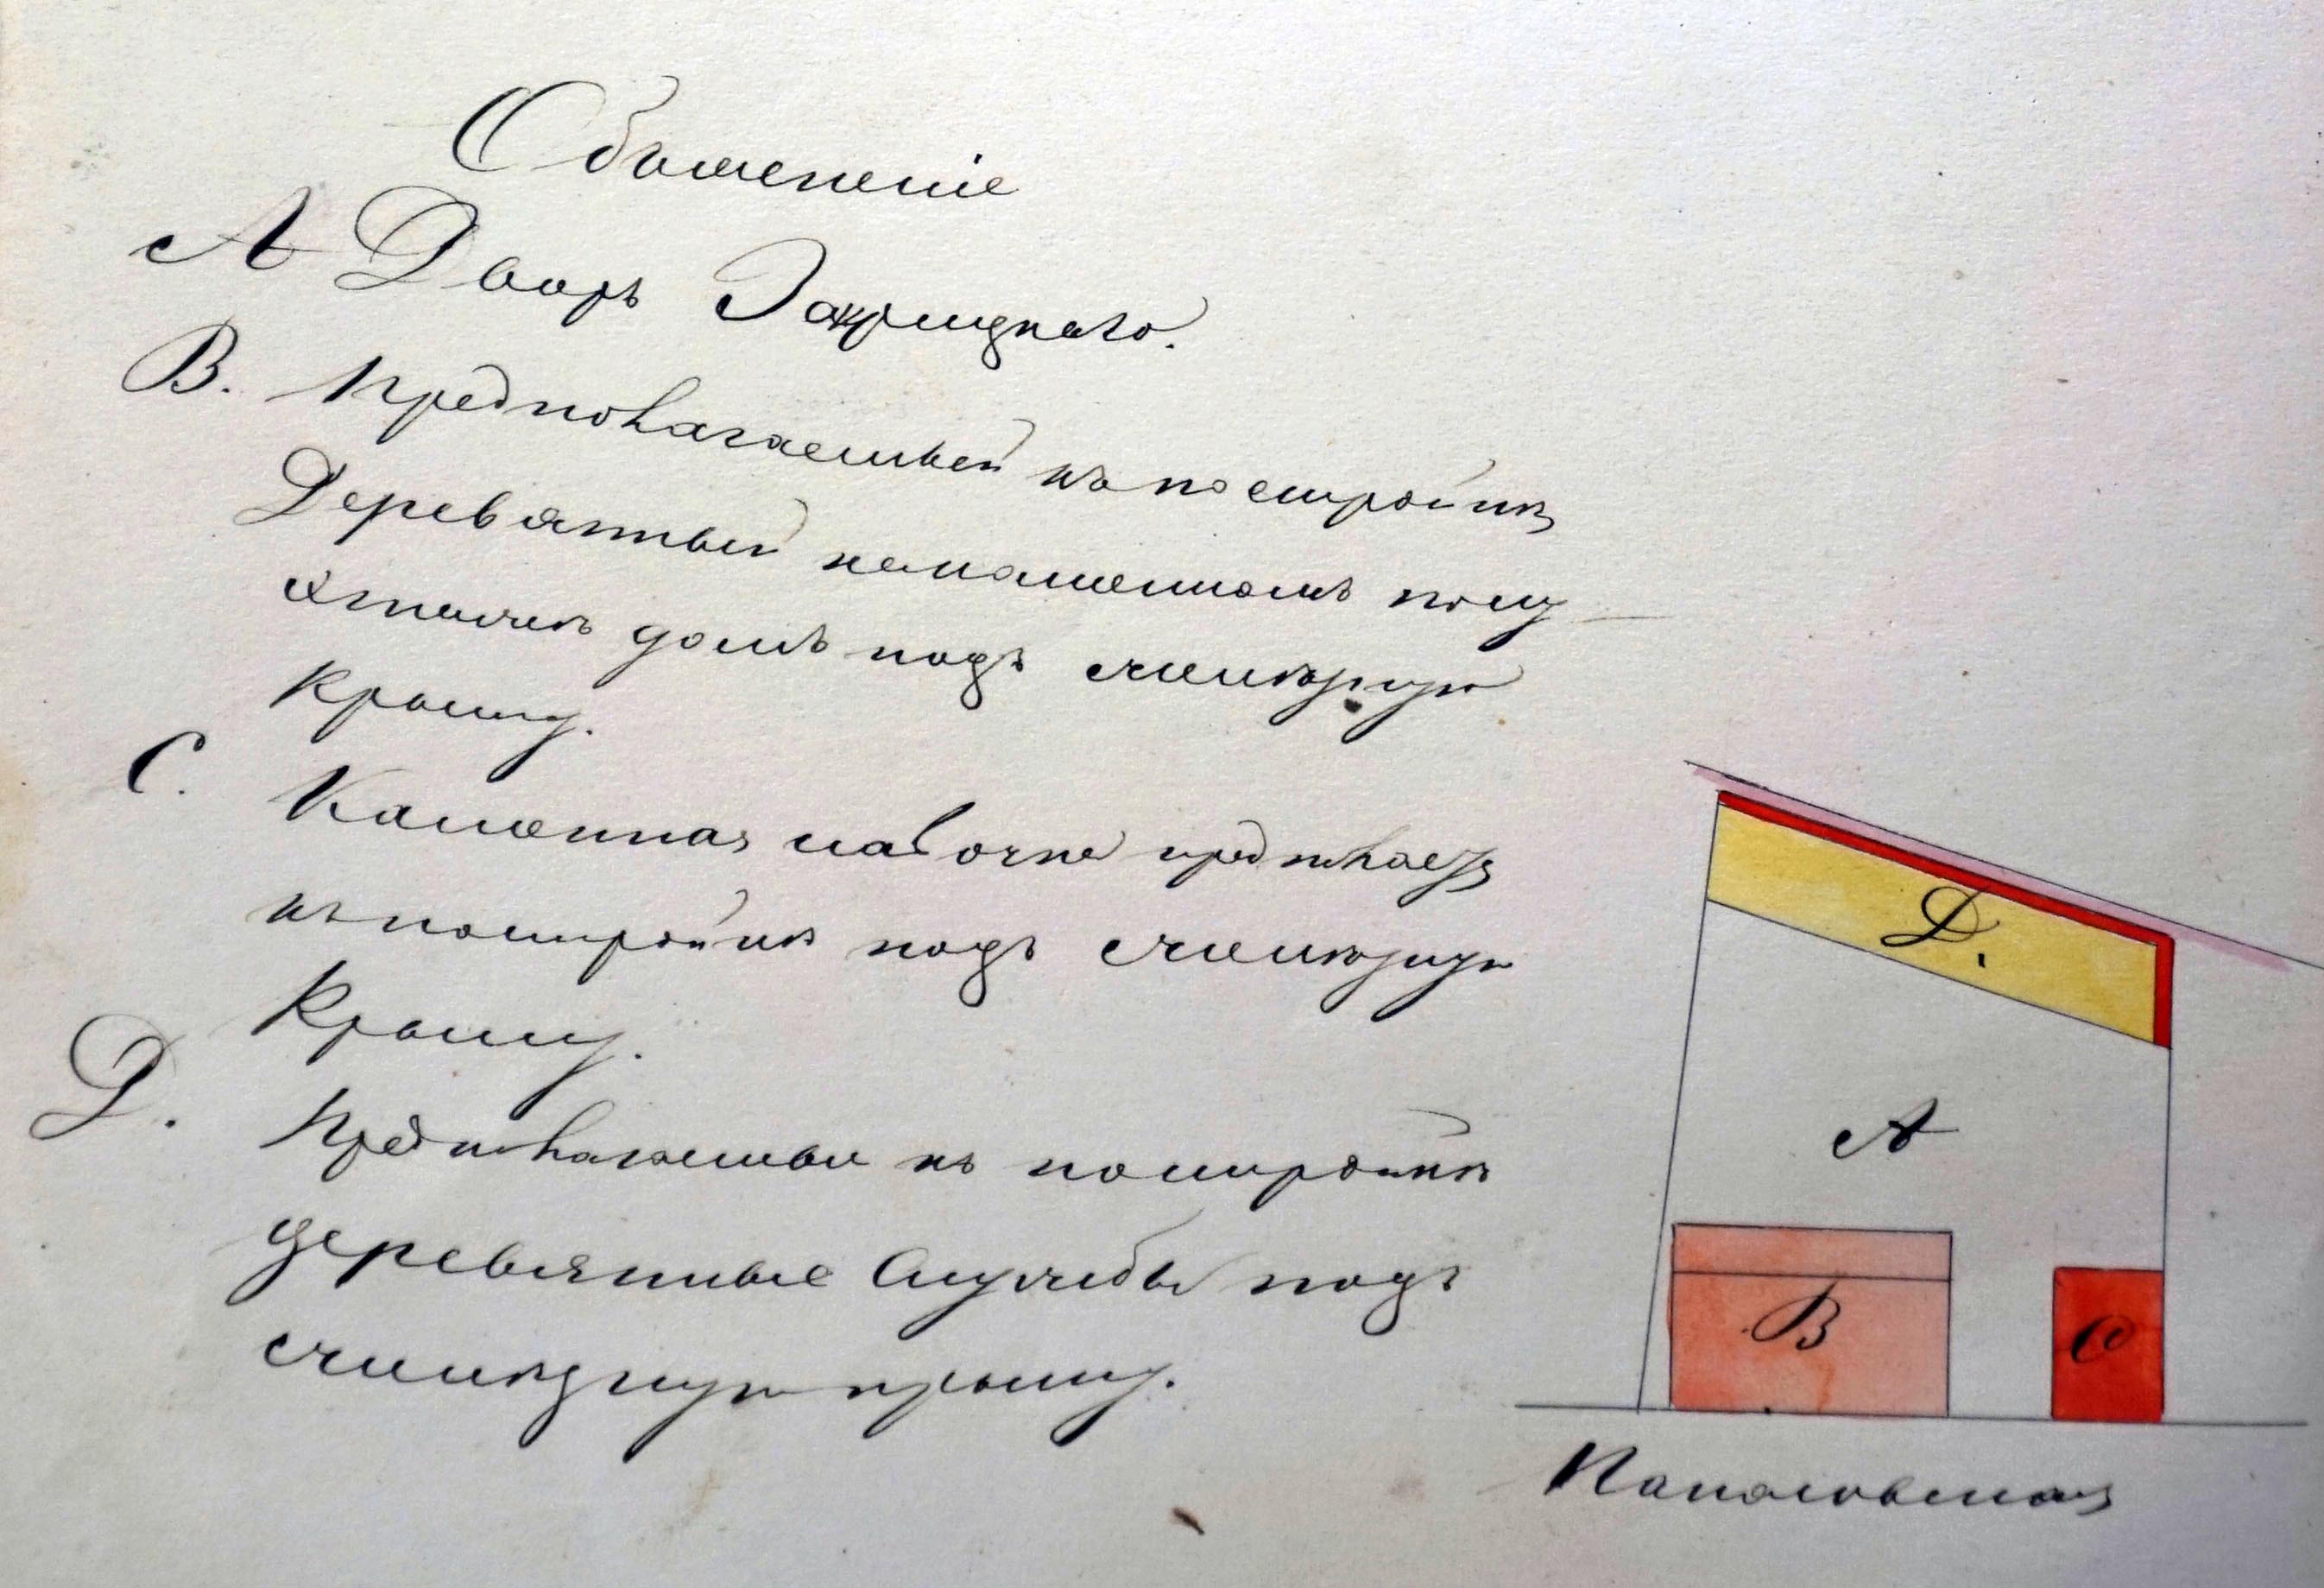 Объясненіе
А Дворъ
В. Предполагаемый къ постройкѣ
Деревянный на каменномъ полу-
этажѣ домъ подъ желѣзную
крышу.
С. Каменная лавочка предпола
къ постройкѣ подъ желѣзную
Крышу.
D. Предполагаемыя къ постройкѣ
деревянные Службы подъ
желѣзную крышу.
D.
А
В
С